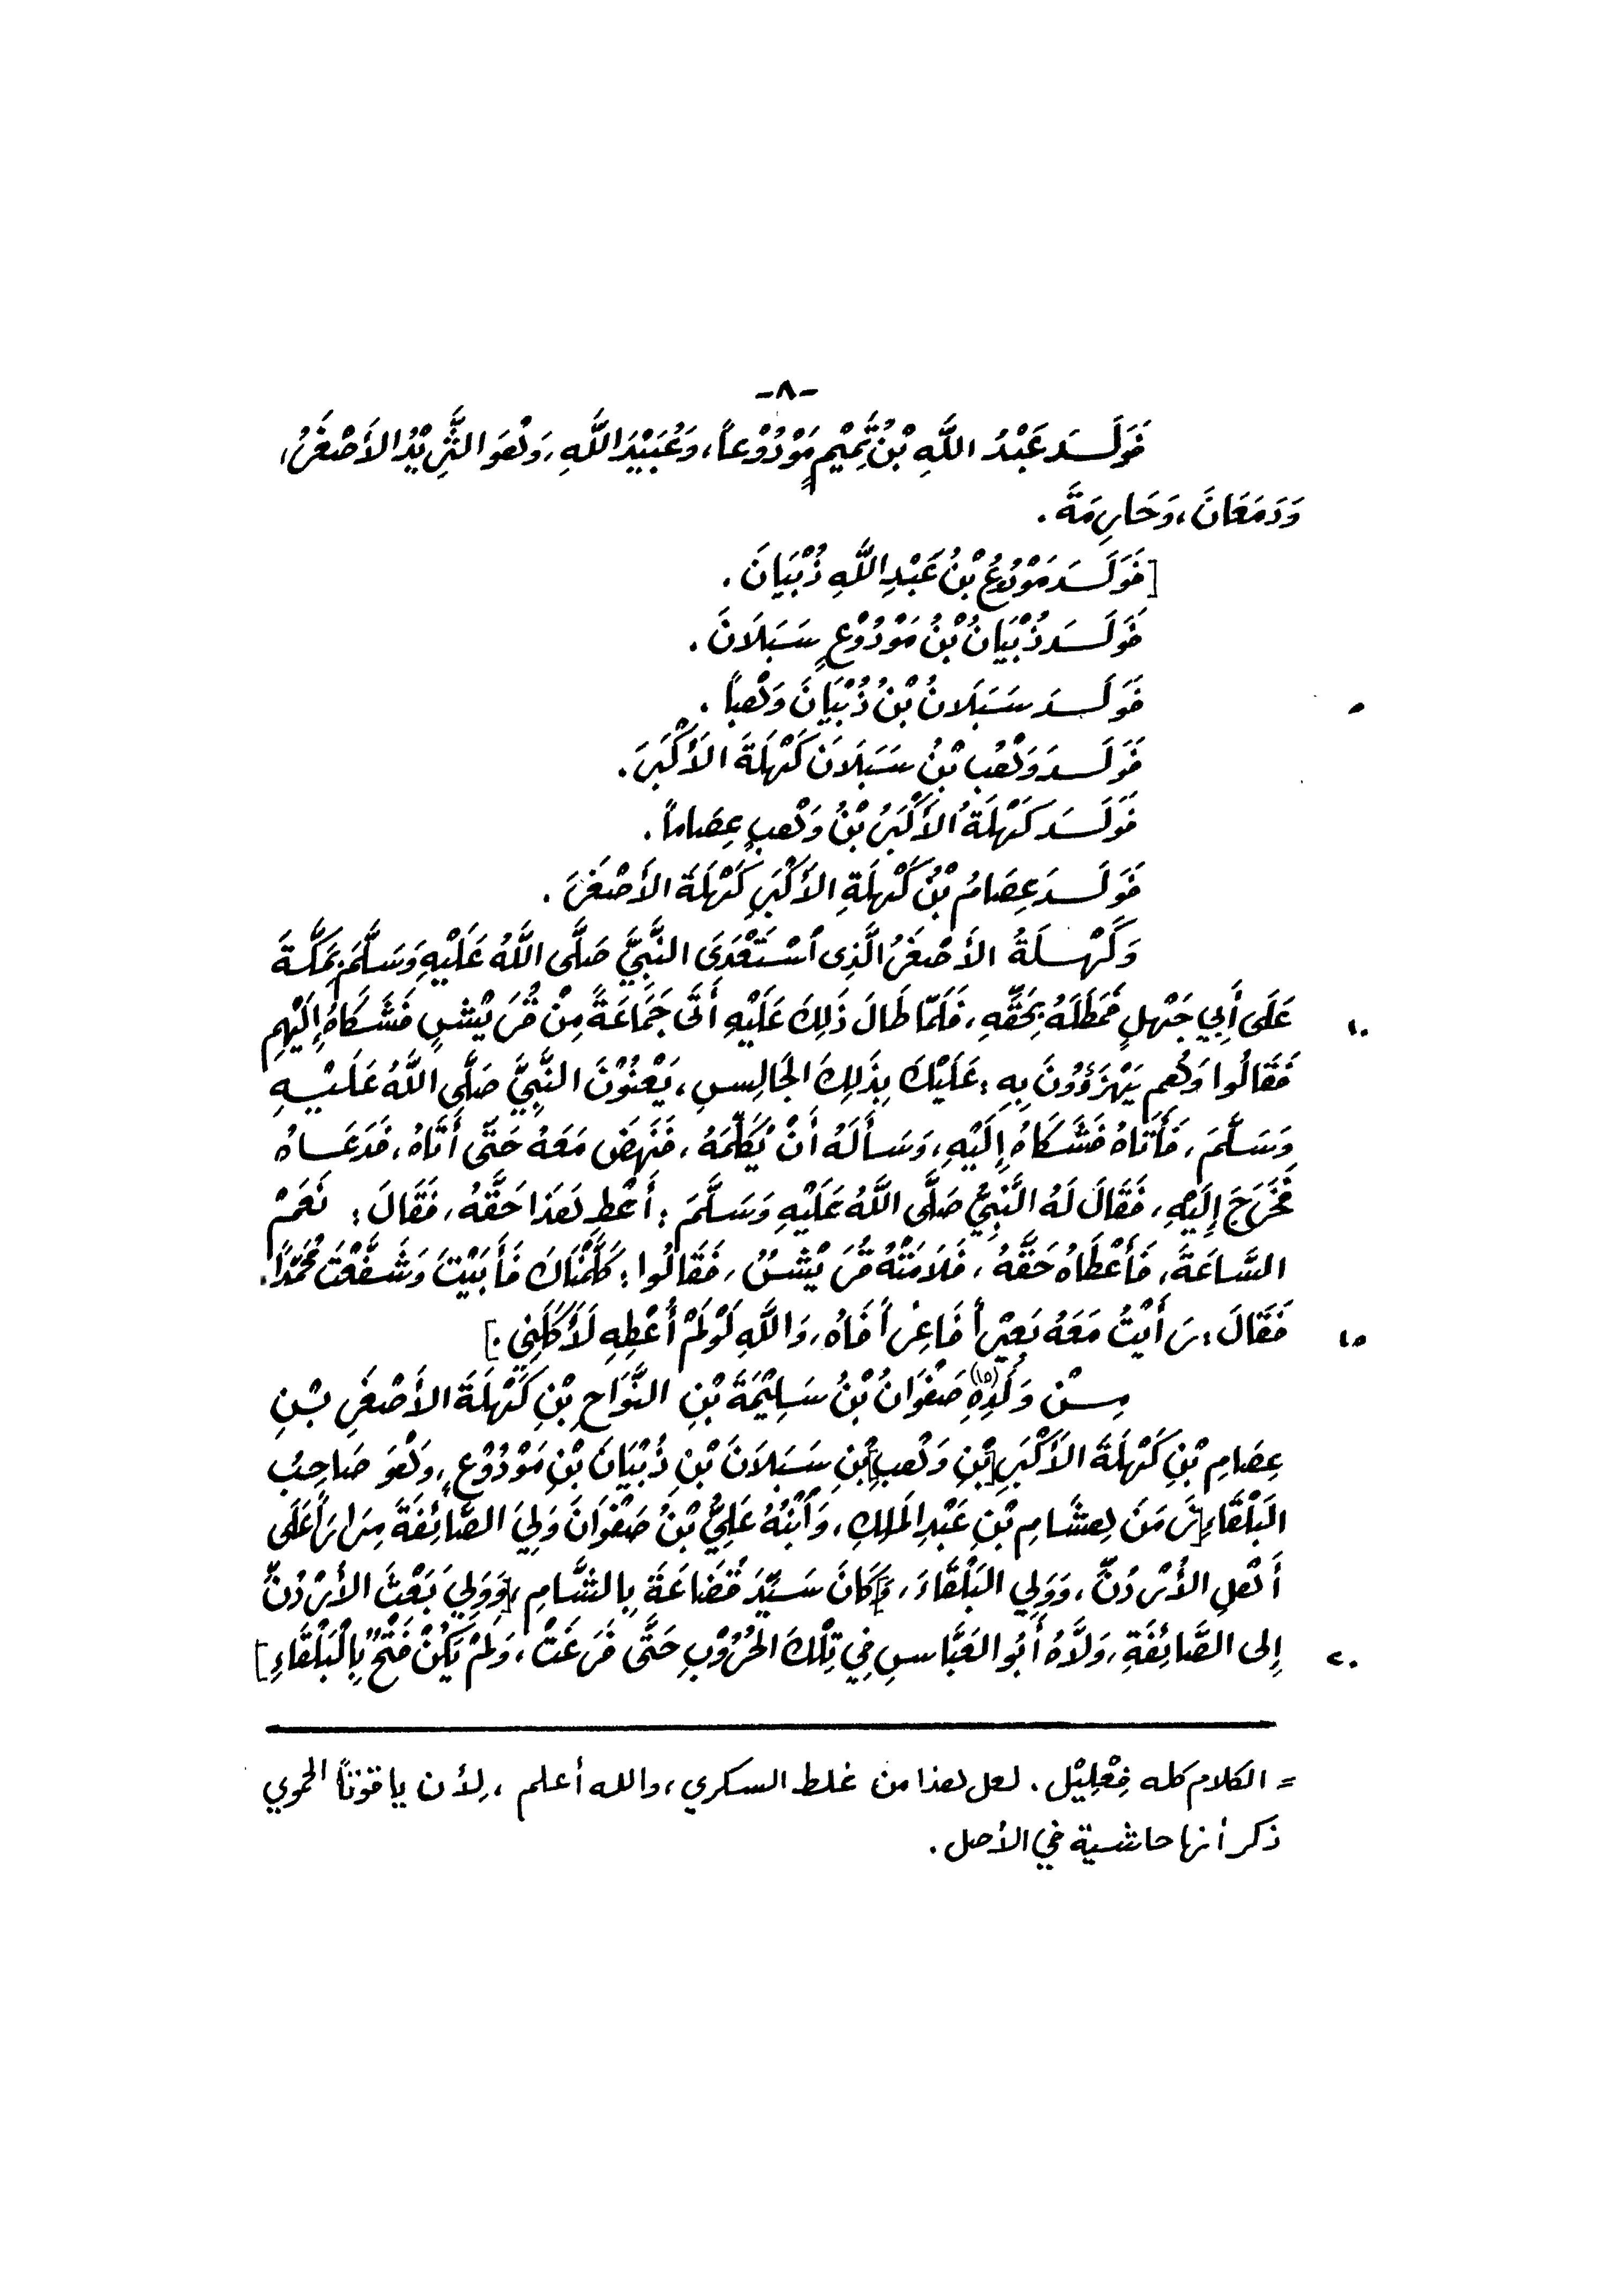 -٨-
فَوَلَــدَ عَبْدُ اللَّهِ بْنُ تَمِيْمٍ مَوْدُوْعاً، وَعُبَيْدَ اللَّهِ، وَهُوَ الثَّرِيْدُ الأَصْغَرُ،
وَدَمَعَانَ، وَحَارِمَةَ.
[فَوَلَــدَ مَوْدُوْعُ بْنُ عَبْدِ اللَّهِ ذُبْيَانَ.
فَوَلَــدَ ذُبْيَانُ بْنُ مَوْدُوْعٍ سَبَلَانَ.
٥ فَوَلَــدَ سَبَلَانُ بْنُ ذُبْيَانَ وَهْباً.
فَوَلَــدَ وَهْبُ بْنُ سَبَلَانَ كَهْلَةَ الأَكْبَرَ.
فَوَلَــدَ كَهْلَةُ الأَكْبَرُ بْنُ وَهْبٍ عِصَاماً.
فَوَلَــدَ عِصَامُ بْنُ كَهْلَةِ الأَكْبَرِ كَهْلَةَ الأَصْغَرَ.
وَكَهْــلَةُ الأَصْغَرُ الَّذِي اسْتَعْدَى النَّبِيَّ صَلَّى اللَّهُ عَلَيْهِ وَسَلَّمَ بِمَكَّةَ
١٠ عَلَى أَبِي جَهْلٍ فَمَطَلَهُ بِحَقِّهِ، فَلَمَّا طَالَ ذَلِكَ عَلَيْهِ أَتَى جَمَاعَةً مِنْ قُرَيْشٍ فَشَكَاهُ إِلَيْهِم
فَقَالُوا وَهُم يَهْزَؤُونَ بِهِ: عَلَيْكَ بِذَلِكَ الجَالِسِ، يَعْنُوْنَ النَّبِيَّ صَلَّى اللَّهُ عَلَيْــهِ
وَسَلَّمَ، فَأَتَاهُ فَشَكَاهُ إِلَيْهِ، وَسَأَلَهُ أَنْ يُكَلِّمَهُ، فَنَهَضَ مَعَهُ حَتَّى أَتَاهُ، فَدَعَــاهُ
فَخَرَجَ إِلَيْهِ، فَقَالَ لَهُ النَّبِيُّ صَلَّى اللَّهُ عَلَيْهِ وَسَلَّمَ: أَعْطِ هَذَا حَقَّهُ، فَقَالَ: نَعَمْ
السَّاعَةَ، فَأَعْطَاهُ حَقَّهُ، فَلَامَتْهُ قُرَيْشٌ، فَقَالُوا: كَلَّمْنَاكَ فَأَبَيْتَ وَشَفَّعْتَ مُحَمَّدَاً.
١٥ فَقَالَ: رَأَيْتُ مَعَهُ بَعِيْراً فَاغِرَاً فَاهُ، وَاللَّهِ لَوْ لَمْ أُعْطِهِ لَأَكَلَنِي.]
مِــنْ وَلَدِهِ (١٥) صَفْوَانُ بْنُ سَلِيْمَةَ بْنِ النَّوَاحِ بْنِ كَهْلَةَ الأَصْغَرِ بْــنِ
عِصَامِ بْنِ كَهْلَةَ الأَكْبَرِ [بْنِ وَهْبِ] بْنِ سَبَلَانَ بْنِ ذُبْيَانَ بْنِ مَوْدُوْعٍ، وَهُوَ صَاحِبُ
البَلْقَاءِ [زَمَنَ هِشَامِ بْنِ عَبْدِ المَلِكِ، وَابْنُهُ عَلِيُّ بْنُ صَفْوَانَ وَلِيَ الصَّائِفَةَ مِرَاراً عَلَى
أَهْلِ الأُرْدُنِّ، وَوَلِي البَلْقَاءَ، وَ] كَانَ سَيِّدَ قُضَاعَةَ بِالشَّامِ، [وَوَلِيَ بَعْثَ الأُرْدُنِّ
٢٠ إِلى الصَّائِفَةِ، وَلَّاهُ أَبُو العَبَّاسِ فِي تِلْكَ الحُرُوْبِ حَتَّى فَرَغَتْ، وَلَمْ يَكُنْ فَتْحٌ بِالْبَلْقَاءِ]
= الكلام كله فِعْلِيْل. لعل هذا من غلط السكري، والله أعلم، لِأن ياقوتاً الحموي
ذكر أنها حاشية في الأصل.